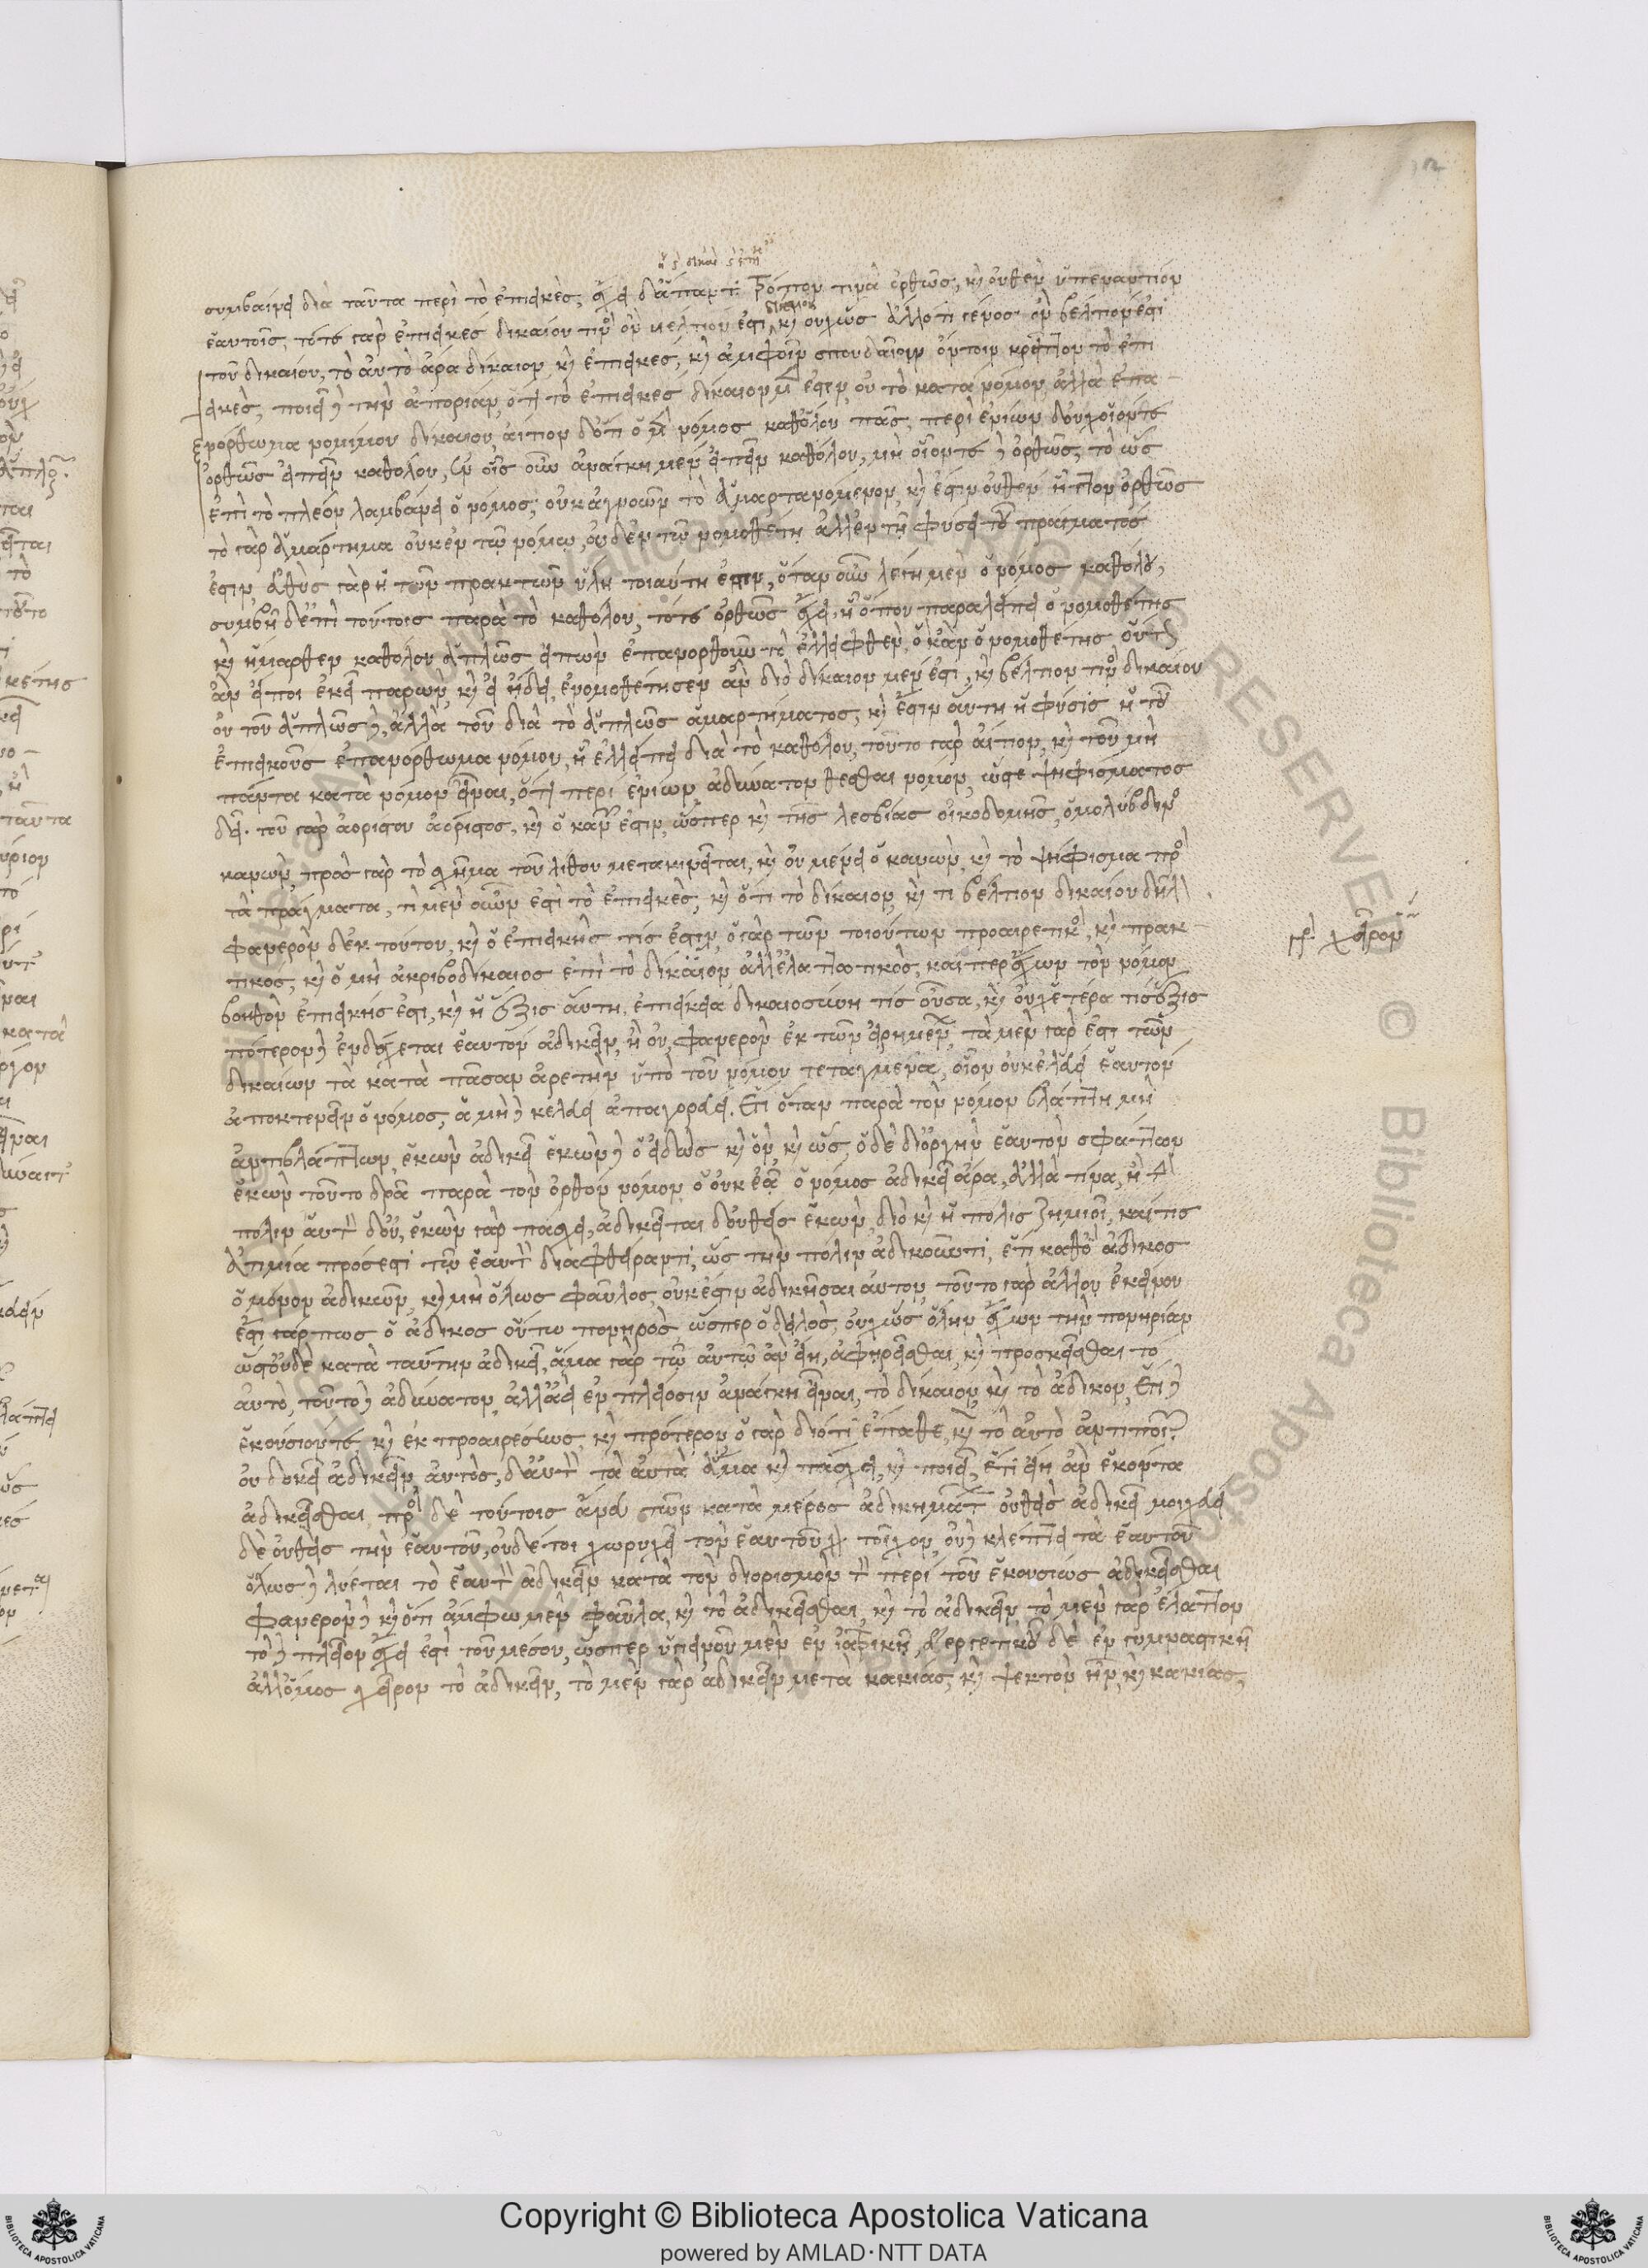 συμβαίνει διὰ ταῦτα περὶ τὸ ἐπιεικές, ἔχει δ' ἅπαντα τρόπον τινὰ ὀρθῶς, καὶ οὐθὲν ὑπεναντίον
ἑαυτοῖς, τό τε γὰρ ἐπιεικές δικαίου τινὸς ὂν βέλτιόν ἐστι δίκαιον, καὶ οὐχ ὡς ἄλλο τι γένος ὂν βέλτιόν ἐστι
τοῦ δικαίου, τὸ αὐτὸ ἄρα δίκαιον καὶ ἐπιεικές, καὶ ἀμφοῖν σπουδαίοιν ὄντοιν κρεῖττον τὸ ἐπι
εικὲς, ποιεῖ δὲ τὴν ἀπορίαν, ὅτι τὸ ἐπιεικὲς δίκαιον μέν ἐστιν, οὐ τὸ κατὰ νόμον, ἀλλ' ἐπα
νόρθωμα νομίμου δικαίου, αἴτιον δ' ὅτι ὁ μὲν νόμος καθόλου πᾶς, περὶ ἐνίων δ' οὐχ οἷόν τε
ὀρθῶς εἰπεῖν καθόλου, ἐν οἷς οὖν ἀνάγκη μὲν εἰπεῖν καθόλου, μὴ οἷόν τε δὲ ὀρθῶς, τὸ ὡς
ἐπὶ τὸ πλέον λαμβάνει ὁ νόμος, οὐκ ἀγνοῶν τὸ ἁμαρτανόμενον, καὶ ἔστιν οὐθὲν ἧττον ὀρθῶς
τὸ γὰρ ἁμάρτημα οὐκ ἐν τῷ νόμῳ, οὐδ' ἐν τῷ νομοθέτῃ ἀλλ' ἐν τῇ φύσει τοῦ πράγματός
ἐστιν, εὐθὺς γὰρ ἡ τῶν πρακτῶν ὕλη τοιαύτη ἐστιν, ὅταν οὖν λέγῃ μὲν ὁ νόμος καθόλου,
συμβῇ δ' ἐπὶ τούτοις παρὰ τὸ καθόλου, τότε ὀρθῶς ἔχει, ᾗ ὅπου παραλείπει ὁ νομοθέτης
καὶ ἥμαρτεν καθόλου ἁπλῶς εἰπὼν ἐπανορθοῦν τὸ ἐλλειφθέν, ὃ κἂν ὁ νομοθέτης οὕτως
ἂν εἴποι ἐκεῖ παρών, καὶ εἰ ᾔδει, ἐνομοθέτησεν ἂν διὸ δίκαιον μέν ἐστι, καὶ βέλτιον τινὸς δικαίου
οὐ τοῦ ἁπλῶς δὲ, ἀλλὰ τοῦ διὰ τὸ ἁπλῶς ἁμαρτήματος, καὶ ἔστιν αὕτη ἡ φύσις ἡ τοῦ
ἐπιεικοῦς ἐπανόρθωμα νόμου, ᾗ ἐλλείπει διὰ τὸ καθόλου, τοῦτο γὰρ αἴτιον, καὶ τοῦ μὴ
πάντα κατὰ νόμον εἶναι, ὅτι περὶ ἐνίων ἀδύνατον θέσθαι νόμον, ὥστε ψηφίσματος
δεῖ. τοῦ γὰρ ἀορίστου ἀόριστος, καὶ ὁ κανών ἐστιν, ὥσπερ καὶ τῆς λεσβίας οἰκοδομῆς, ὁ μολύβδινος
κανών, πρὸς γὰρ τὸ σχῆμα τοῦ λίθου μετακινεῖται, καὶ οὐ μένει ὁ κανών, καὶ τὸ ψήφισμα πρὸς
τὰ πράγματα, τί μὲν οὖν ἐστὶ τὸ ἐπιεικὲς, καὶ ὅτι τὸ δίκαιον, καὶ τι βέλτιον δικαίου δῆλον
φανερὸν δ' ἐκ τούτου, καὶ ὁ ἐπιεικὴς τίς ἐστιν, ὁ γὰρ τῶν τοιούτων προαιρετικὸς, καὶ πρακ
τικος, καὶ ὁ μὴ ἀκριβοδίκαιος ἐπὶ τὸ δίκαιον ἀλλ' ἐλαττωτικὸς, καίπερ ἔχων τὸν νόμον
βοηθὸν ἐπιεικής ἐστι, καὶ ἡ ἕξις αὕτη, ἐπιείκεια δικαιοσύνη τίς οὖσα, καὶ οὐχ ἑτέρα τὶς ἕξις
πότερον δὲ ἐνδέχεται ἑαυτὸν ἀδικεῖν, ἢ οὐ, φανερὸν ἐκ τῶν εἰρημένων, τὰ μὲν γὰρ ἐστι τῶν
δικαίων τὰ κατὰ πᾶσαν ἀρετὴν ὑπὸ τοῦ νόμου τεταγμένα, οἷον οὐ κελεύει ἑαυτὸν
ἀποκτεινεῖν ὁ νόμος, ἃ μὴ δὲ κελεύει ἀπαγορεύει. ἔτι ὅταν παρὰ τὸν νόμον βλάπτῃ μὴ
ἀντιβλάπτων, ἑκὼν ἀδικεῖ ἑκὼν δὲ ὁ εἰδὼς καὶ ὃν, καὶ ὡς, ὁ δὲ δι' ὀργὴν ἑαυτὸν σφάττων
ἑκὼν τοῦτο δρᾷ παρὰ τὸν ὀρθὸν νόμον ὃ οὐκ ἐᾷ ὁ νόμος ἀδικεῖ ἄρα, ἀλλὰ τίνα, ἢ τὴν
πόλιν αὐτὸν δ' οὔ, ἑκὼν γὰρ πάσχει, ἀδικεῖται δ' οὐθεὶς ἑκών, διὸ καὶ ἡ πόλις ζημιοῖ, καί τις
ἀτιμία πρόσεστι τῷ ἑαυτὸν διαφθείραντι, ὡς τὴν πόλιν ἀδικοῦντι, ἔτι καθ' ὃ ἄδικος
ὁ μόνον ἀδικῶν, καὶ μὴ ὅλως φαῦλος, οὐκ ἔστιν ἀδικῆσαι αὑτόν, τοῦτο γὰρ ἄλλου ἐκείνου
ἔστι γάρ πως ὁ ἄδικος οὕτω πονηρὸς, ὥσπερ ὁ δειλὸς, οὐχ ὡς ὅλην ἔχων τὴν πονηρίαν
ὥστ' οὐδὲ κατὰ ταύτην ἀδικεῖ, ἅμα γὰρ τῷ αὐτῷ ἂν εἴη, ἀφῃρεῖσθαι, καὶ προσκεῖσθαι τὸ
αὐτό, τοῦτο δὲ ἀδύνατον, ἀλλ' ἀεὶ ἐν πλείοσιν ἀνάγκη εἶναι, τὸ δίκαιον, καὶ τὸ ἄδικον, ἔτι δὲ
ἑκούσιόν τε, καὶ ἐκ προαιρέσεως, καὶ πρότερον ὁ γὰρ διότι ἔπαθε, καὶ τὸ αὐτὸ ἀντιποιῶν
οὐ δοκεῖ ἀδικεῖν αὐτὸς, δ' αὑτὸν τὰ αὐτὰ ἅμα καὶ πάσχει, καὶ ποιεῖ, ἔτι εἴη ἂν ἑκόντα
ἀδικεῖσθαι, πρὸς δὲ τούτοις ἄνευ τῶν κατὰ μέρος ἀδικημάτων οὐθεὶς ἀδικεῖ μοιχεύει
δὲ οὐθεὶς τὴν ἑαυτοῦ, οὐδέ τοι χωρυχεῖ τὸν ἑαυτοῦ τοῖχον, οὐδὲ κλέπτει τὰ ἑαυτοῦ
ὅλως δὲ λύεται τὸ ἑαυτὸν ἀδικεῖν κατὰ τὸν διορισμὸν τὸν περὶ τοῦ ἑκουσίως ἀδικεῖσθαι
φανερὸν δὲ καὶ ὅτι ἄμφω μὲν φαῦλα, καὶ τὸ ἀδικεῖσθαι, καὶ τὸ ἀδικεῖν, τὸ μὲν γὰρ ἔλαττον
τὸ δὲ πλεῖον ἔχειν ἐστὶ τοῦ μέσου, ὥσπερ ὑγιεινοῦ μὲν ἐν ἰατρικῇ, εὐεργετικοῦ δὲ ἐν γυμναστικῇ
ἀλλ' ὅμως χεῖρον τὸ ἀδικεῖν, τὸ μὲν γὰρ ἀδικεῖν μετὰ κακίας, καὶ ψεκτὸν ἦν, καὶ κακίας,
Copyright © Biblioteca Apostolica Vaticana
powered by AMLAD·NTT DATA